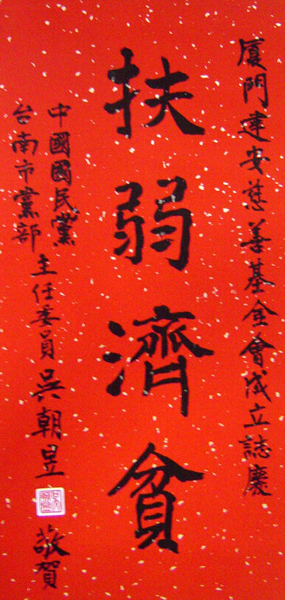 廈門建安慈善基金會成立誌慶
扶弱濟貧
中國國民黨
台南市黨部
主任委員吳朝昱
敬賀